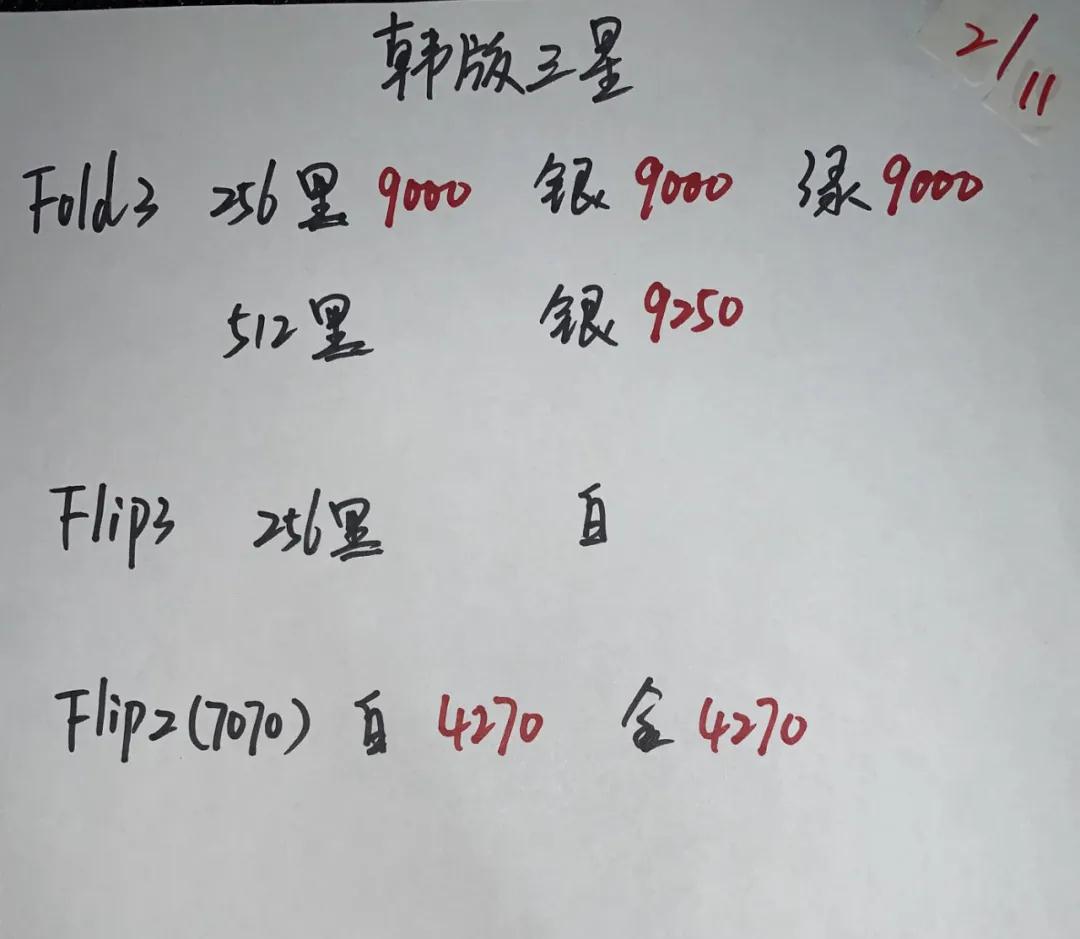 韩版三星
2/11
Fold3 256黑 9000 银 9000 绿 9000
512黑 银 9250
Flip3 256黑 白
Flip2(7070) 白 4270 金 4270